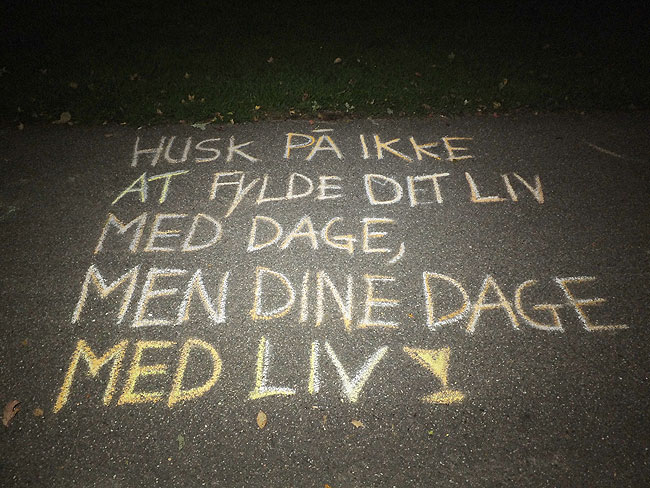 HUSK PÅ IKKE
AT FYLDE DIT LIV
MED DAGE,
MEN DINE DAGE
MED LIV!